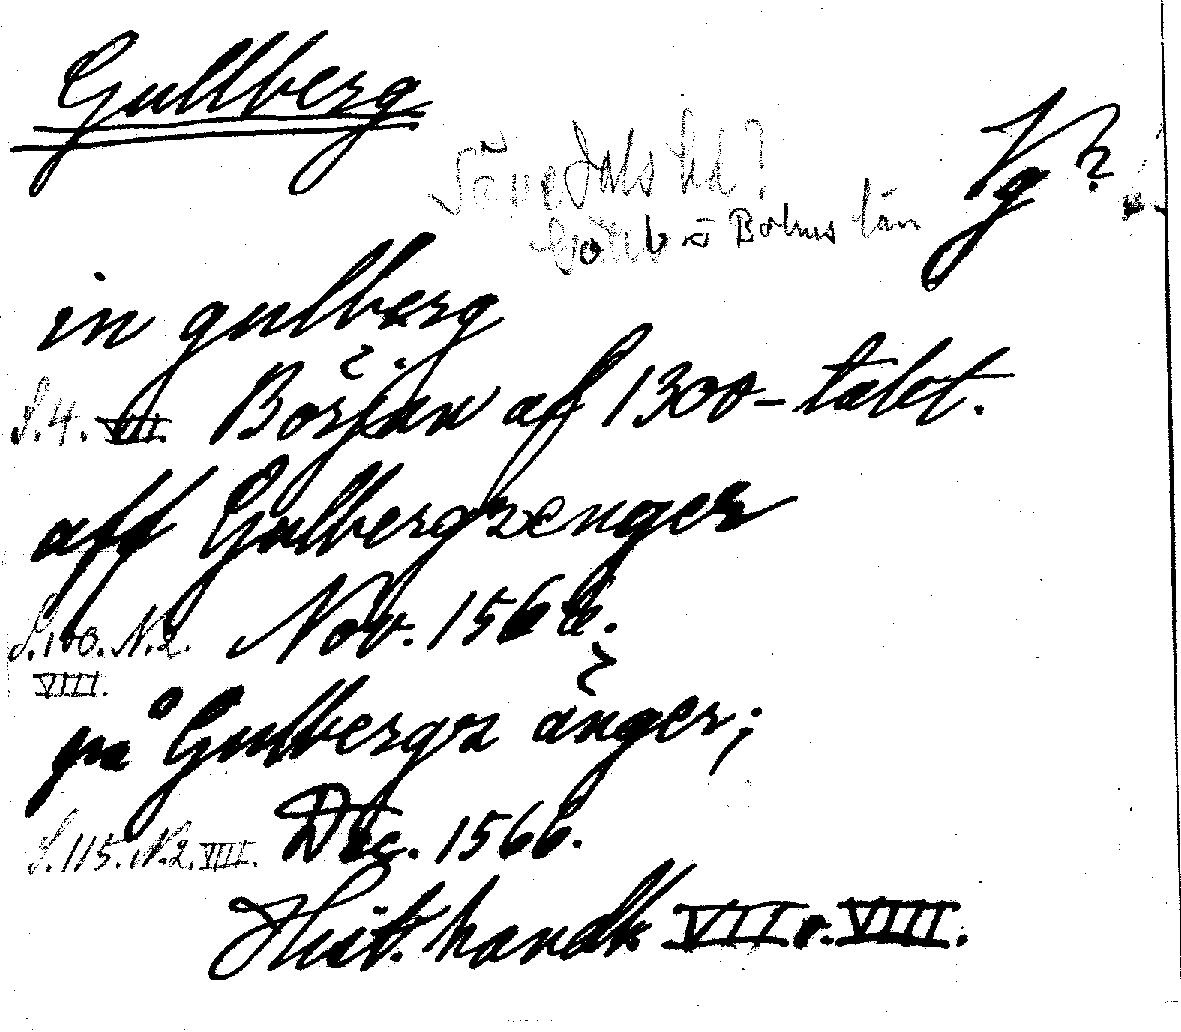 Gullberg
Vg?
Sävedals hd?
Göteb o Bohus län
in gulberg
S. 4. VII. Början af 1300-talet.
aff Gulbergzenger
S. 100. N. 2. VIII. Nov. 1566.
på Gulbergz änger;
S. 115. N. 2. VIII. Dec. 1566.
Hist. handl. VII o. VIII.